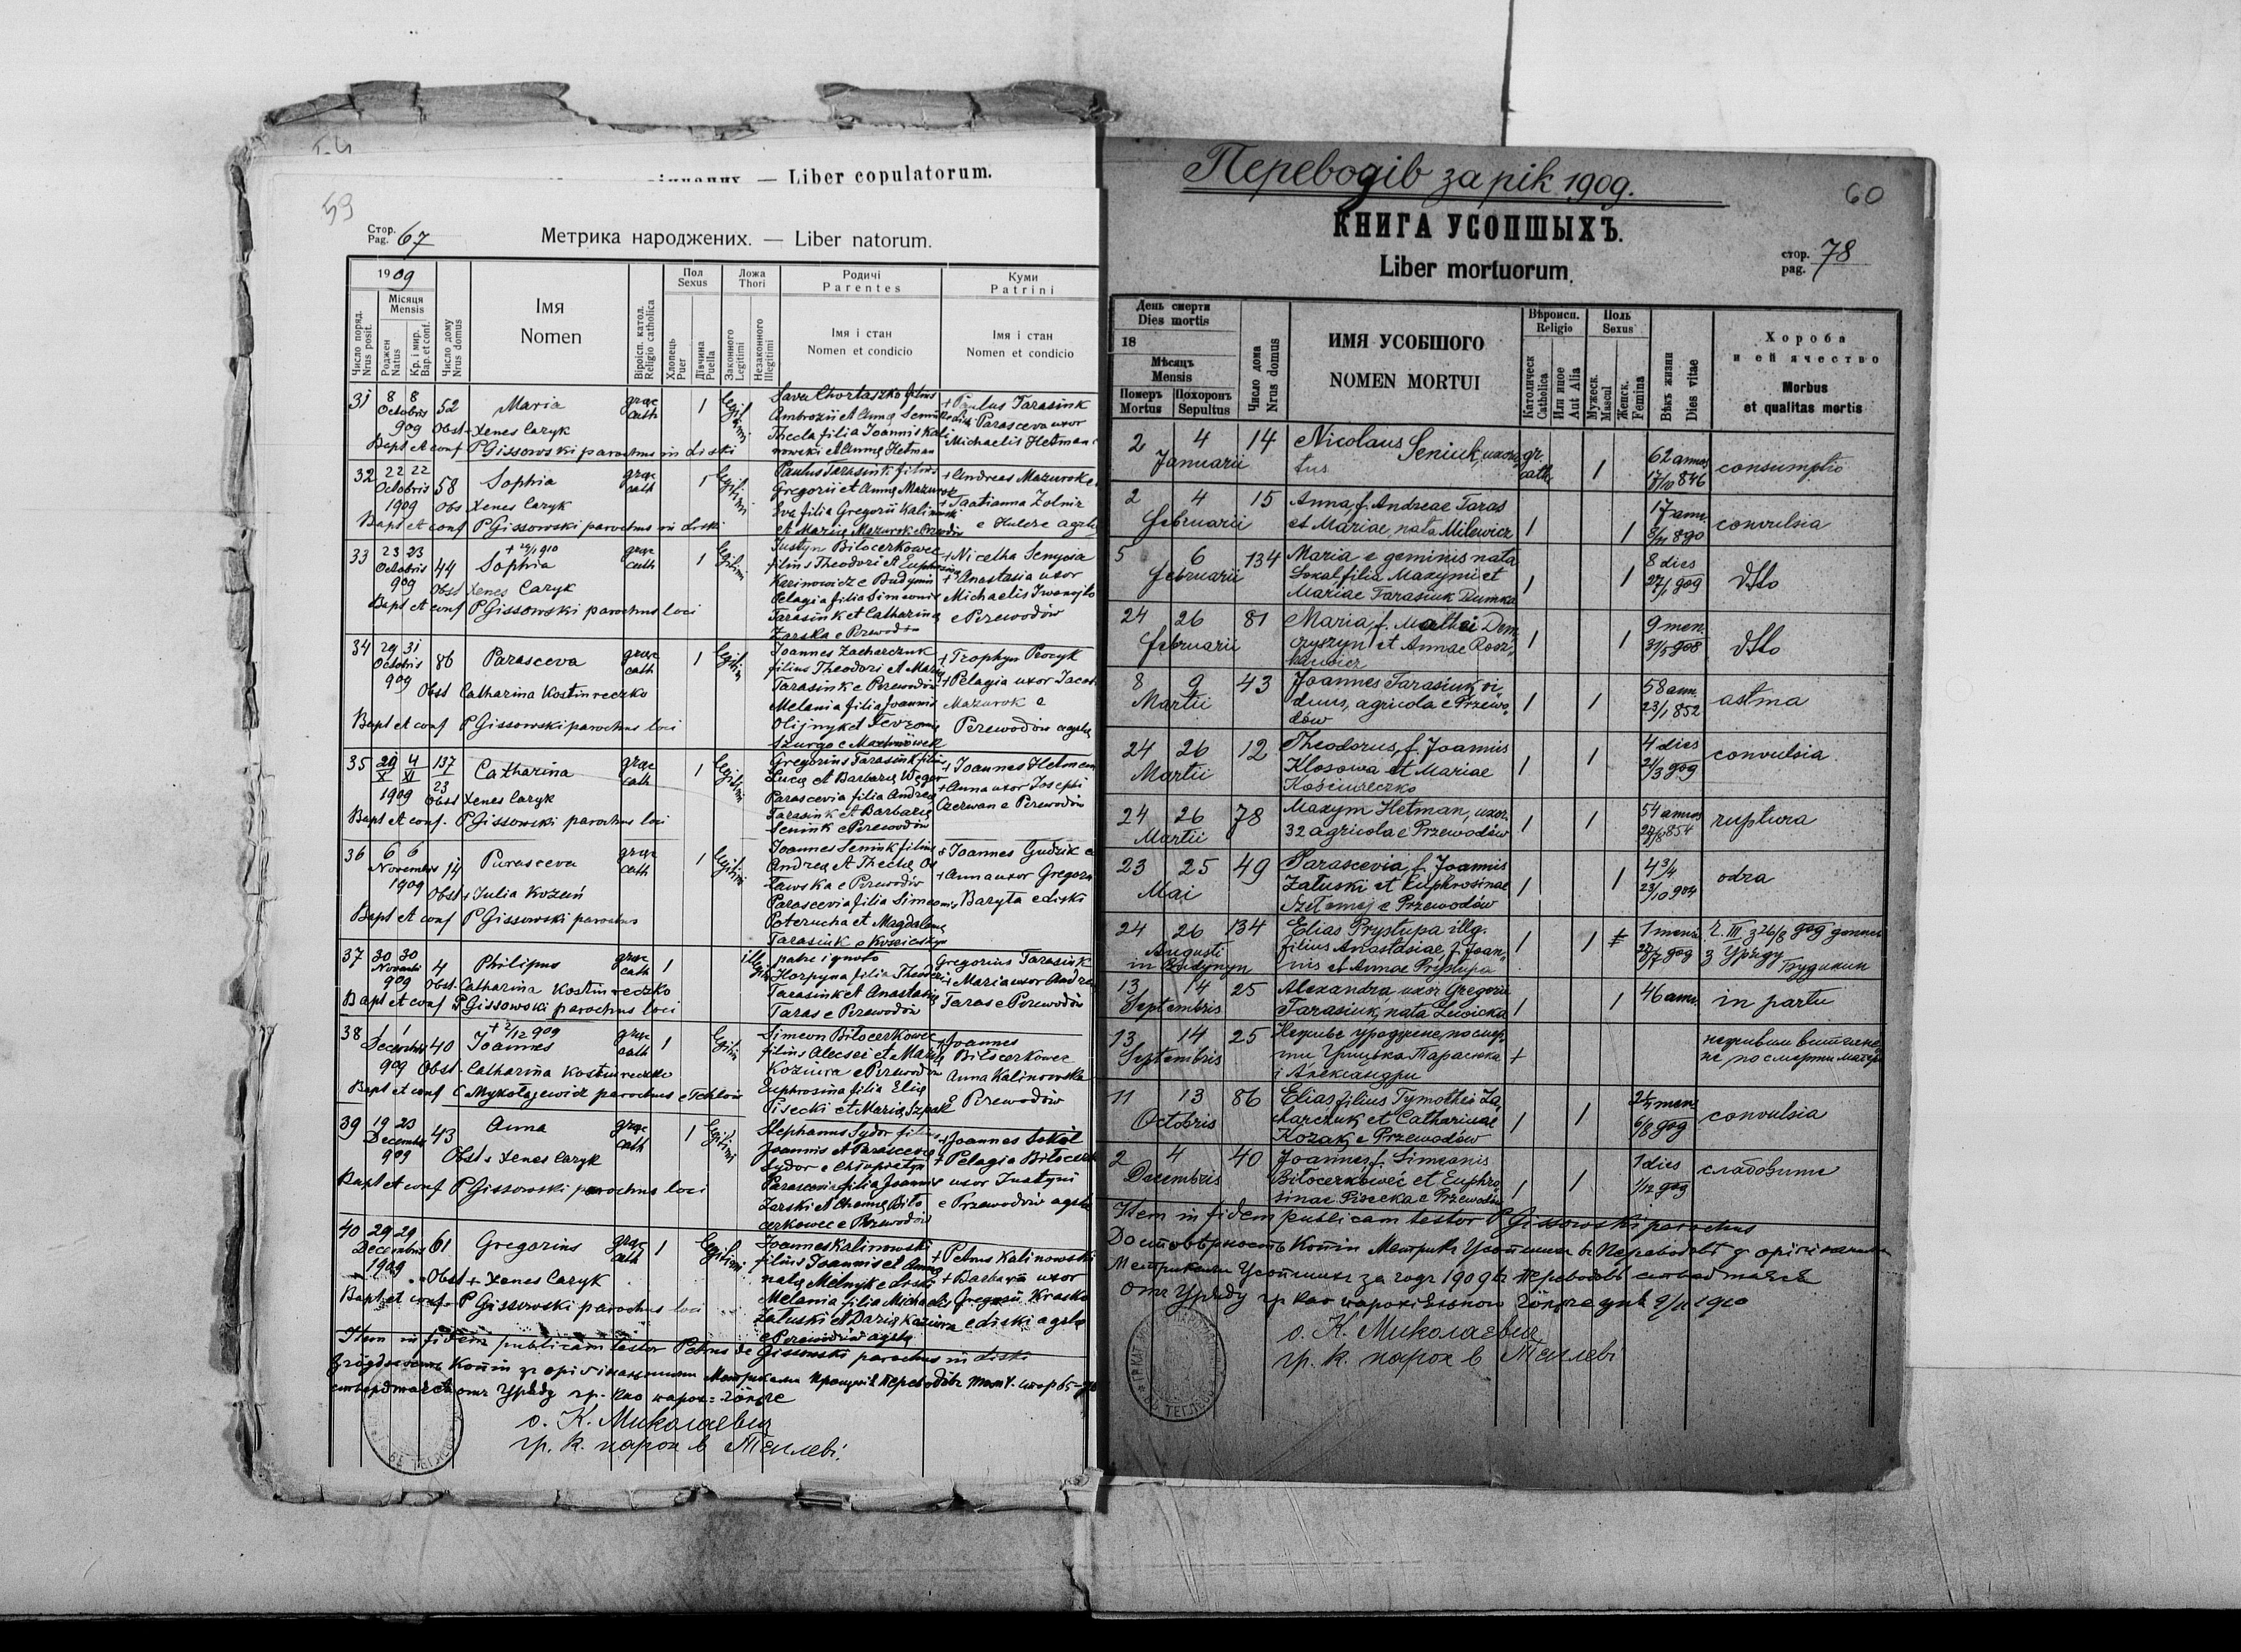 — Liber copulatorum.
59
Стор.
Pag. 67
Метрика народжених. — Liber natorum.
1909
Число поряд.
Nrus posit.
Місяця
Mensis
Роджен
Natus
Кр. і мир.
Bap. et conf.
Число дому
Nrus domus
ІМЯ
Nomen
Віроісп. катол.
Religio catholica
Пол
Sexus
Хлопець
Puer
Дівчина
Puella
Ложа
Thori
Законного
Legitimi
Незаконного
Illegitimi
Родичі
Parentes
Імя і стан
Nomen et condicio
Куми
Patrini
Імя і стан
Nomen et condicio
31 8 8 52 Maria graec 1 legitimi Sava Chortaszko filius + Paulus Tarasiuk
Octobris cath Ambrozii et Annae
909 Obst + Xenes Caryk Thecla filia Joannis Kali Parasceva uxor
Bapt et conf P Gissowski parochus in Liski nowski et Annae Hetman Michaelis Hetman
32 22 22 58 Sophia graec 1 legitimi Paulus Tarasiuk filius + Andreas Mazurok
Octobris cath Gregorii et Annae Mazurok
1909 Obs Xenes Caryk Eva filia Gregorii Kalinowski + Tatianna Zolnir
Bapt et conf P Gissowski parochus in Liski et Mariae Mazurok e Perewodiw e Hulcze agric
33 23 23 44 Sophia graec 1 legitimi Justyn Bilocerkowec + Nicetha Senycia
Octobris cath filius Theodori et Euphrosinae + Anastasia uxor
909 Obst Xenes Caryk Karinowicz e Budynin Michaelis Iwanyto
Bapt et conf P Gissowski parochus loci Pelagia filia Simeonis e Perewodów
Tarasiuk et Catharinae
Zarska e Perewodiw
34 29 31 86 Parasceva graec 1 legitim Joannes Zacharczuk + Trophym Procyk
Octobris cath filius Theodori et Mariae + Pelagia uxor Jacobi
909 Obst Catharina Kostiureczko Tarasiuk e Perewodów Mazurok e
Melania filia Joannis Perewodów agric
Bapt et conf P Gissowski parochus loci Olijnyk et
35 29 4 137 Catharina graec 1 legitimi Gregorius Tarasiuk filius + Joannes Hetman
X XI 23 cath Lucae et Barbarae Węgor + Anna uxor Josephi
1909 Obst Xenes Caryk Parascevia filia Andreae Czerwan e Perewodów
Bapt et conf. P Gissowski parochus loci Tarasiuk et Barbarae
Seniuk e Perewodów
36 6 6 14 Parasceva graec 1 legitimi Joannes Seniuk filius + Joannes Gudzik e
Novembris cath Andreae et Theclae
1909 Obst + Julia Kozeń e Perewodów + Anna uxor Gregorii
Parascevia filia Simeonis Baryta e Liski
Bapt et conf P Gissowski parochus Poterucha et Magdalenae
Tarasiuk e
37 30 30 4 Philipus graec 1 illegiti patre ignoto Gregorius Tarasiuk
Novembris cath Horpyna filia Theodori + Maria uxor Andreae
909 Obst. Catharina Kostiureczko Tarasiuk et Anastasiae Taras e Perewodów
Bapt et conf P Gissowski parochus loci Taras e Perewodów
38 1 1 40 + 2/12 909 graec 1 legitim Simeon Bilocerkowec + Joannes
Decembris Joannes cath filius Alecsei et Mariae Bilocerkowec
909 Obst - Catharina Kostiureczko Koziura e Perewodów Anna Kalinowska
Bapt et conf C Mykołajewicz parochus e Tehlow Euphrosina filia Eliae e Perewodów
Pisecki et Mariae Szpak
39 19 23 43 Anna graec 1 legitimi Stephanus Sydor filius + Joannes Sokół
Decembris cath Joannis et Parascevae + Pelagia Bilocerk
909 Obst s Xenes Caryk Sydor e Chłopiatyn uxor Justyni
Bapt et conf P Gissowski parochus loci Parascevia filia Joannis e Przewodów agric
Zarski et Annae Biło
cerkowec e Perewodów
40 29 29 61 Gregorius graec 1 legitimi Joannes Kalinowski + Petrus Kalinowski
Decembris cath filius Joannis et Annae
1909 Obst + Xenes Caryk natae Melnyk e Liski + Barbara uxor
Bapt et conf P Gissowski parochus loci Melania filia Michaelis Gregorii Krasko
Załuski et Dariae Kaziura e Liski agric
e Perewodów agric
Item in fidem publicam testor Petrus de Gissowski parochus in Liski
о. К. Миколаевич
гр. к. парох в Теглеві.
Переводів за рік 1909.
60
КНИГА УСОПШЫХЪ.
Liber mortuorum,
стор.
pag. 78
День смерти
Dies mortis
18
Мѣсяць
Mensis
Померъ
Mortus
Похоронъ
Sepultus
Число дома
Nrus domus
ИМЯ УСОБШОГО
NOMEN MORTUI
Вѣроисп.
Religio
Католическ
Catholica
Или иное
Aut Alia
Поль
Sexus
Мужеск.
Mascul
Женск.
Femina
Вѣкъ жизни
Dies vitae
Хороба
и ей ячество
Morbus
et qualitas mortis
2 4 14 Nicolaus Seniuk, uxora gr. 1 62 annos consumptio
Januarii tus cath 17/10 846
2 4 15 Anna f. Andreae Taras 17 ann. convulsia
Februarii et Mariae, nata Milewicz 1 1 8/11 890
5 6 134 Maria e geminis nata 8 dies dtto
Februarii Sokal filia Maxymi et 1 1 27/1 909
Mariae Tarasiuk Dumka
24 26 81 Maria, f. Mathei Dem 9 men. dtto
Februarii czyszyn et Annae Rosz 1 1 31/5 908
kiewicz
8 9 43 Joannes Tarasiuk vi 58 ann. astma
Martii duus, agricola e Przewo 1 1 23/1 852
dów
24 26 12 Theodorus, f. Joannis 4 dies convulsia
Martii Klosowa et Mariae 1 1 21/3 909
Kościureczko
24 26 78 Maxym Hetman, uxor. 54 annos ruptura
Martii 32 agricola e Przewodów 1 1 27/8 854
23 25 49 Parascevia, f. Joannis 4 3/4 odra
Mai Załuski et Euphrosinae 1 1 23/10 904
e Przewodów
24 26 134 Elias Prystupa illg. 1 mens. Ч. III з 26/8 909
Augusti filius Anastasiae, f. Joan 1 1 27/7 909 з Уряду
in Budynyn nis et Annae Prystupa Будинин
13 14 25 Alexandra, uxor Gregorii 46 ann. in partu
Septembris Tarasiuk, nata Lewicka 1 1
13 14 25 Неживе уроджене, по смер
Septembris ти Грицька Тарасюка +
і Александри
11 13 86 Elias filius Tymothei Za 2 men convulsia
Octobris charczuk et Catharinae 1 1 6/8 909
Kozak e Przewodów
2 4 40 Joannes, f. Simeonis 1 dies
Decembris Biłocerkoweć et Euphro 1 1 1/12 909
sinae Pisecka e Przewodów
Item in fidem publicam testor P Gissowski parochus
о. К. Миколаевич
гр. к. парох в Теглеві